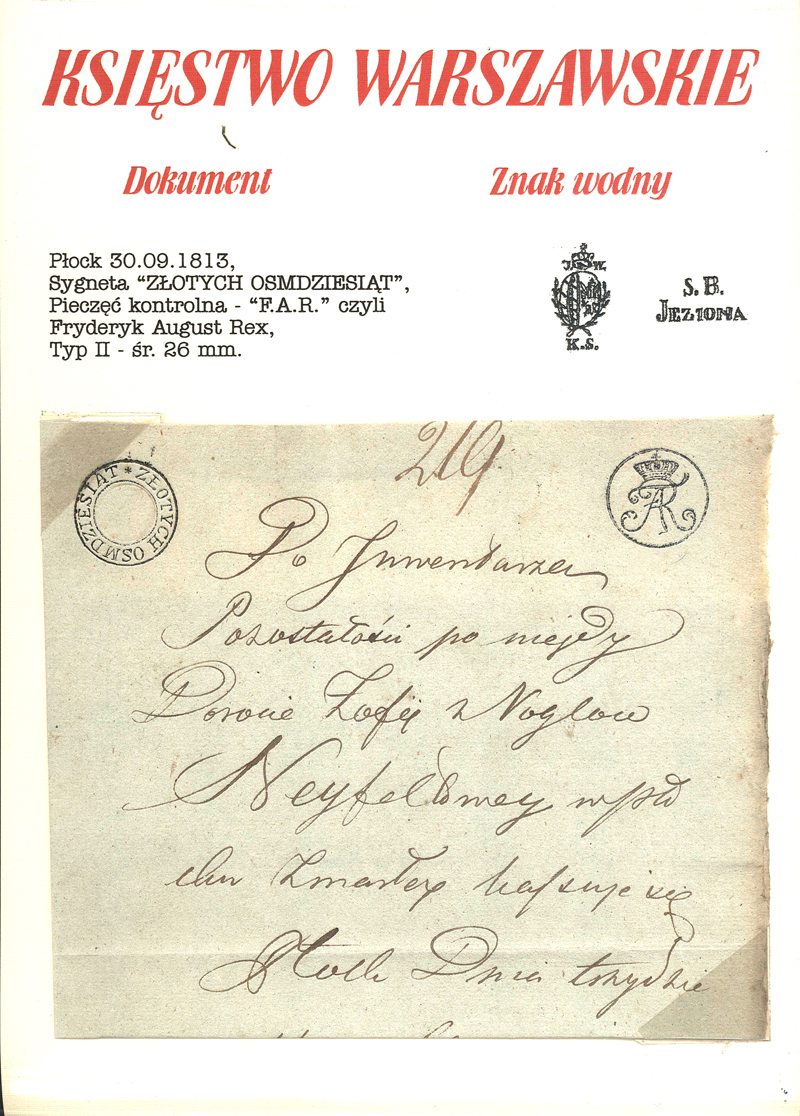 KSIĘSTWO WARSZAWSKIE
Dokument
Znak wodny
Płock 30.09.1813,
Sygneta “ZŁOTYCH OSMDZIESIĄT”,
Pieczęć kontrolna - “F.A.R.” czyli
Fryderyk August Rex,
Typ II - śr. 26 mm.
K.S.
S. B.
JEZIONA
219.
* ZŁOTYCH OSMDZIESIAT
FAR
Do Inwentarza
Pozostałości po niegdy
Dorocie Zofii z Noglow
Neyfeldowey w
Zmarłey kassuje się
Dnia trzydzie